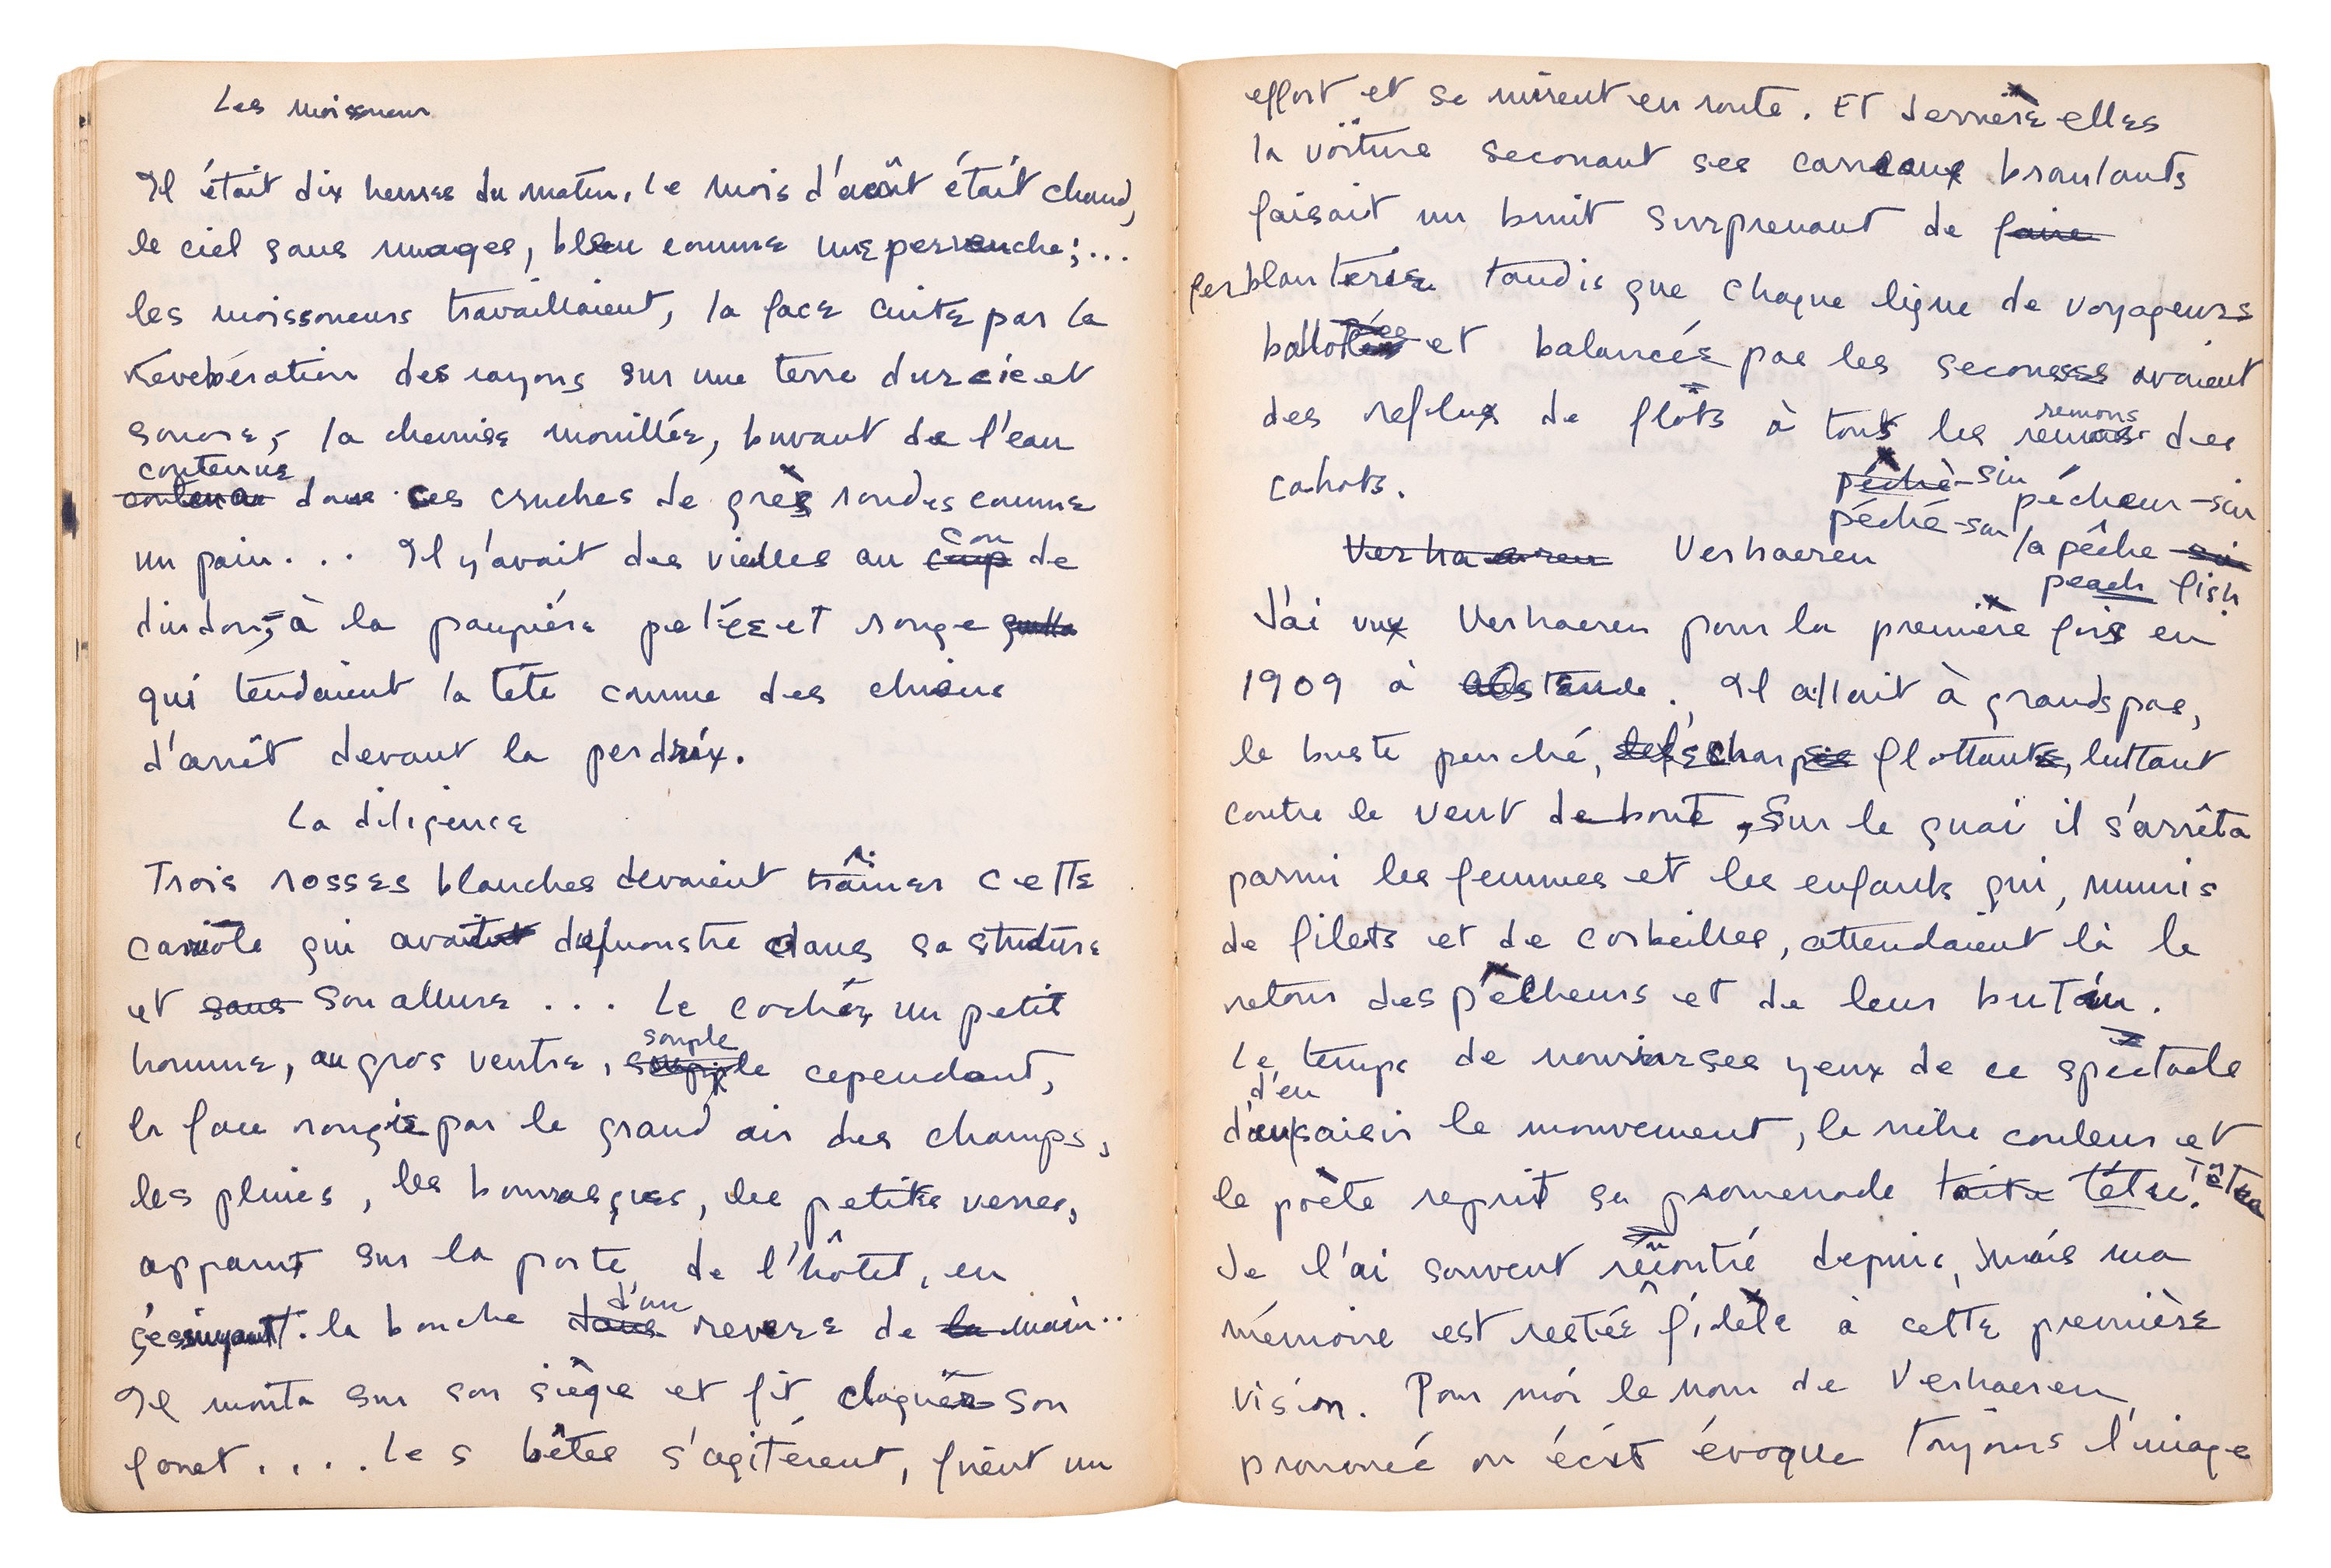 Les moissoneur
Il était dix heures du matin, le mois d'août était chaud,
le ciel sans nuages, bleu comme une pervenche;...
les moissoneurs travaillaient, la face cuite par la
réverbération des rayons sur une terre durcie et
sonore; la chemise mouillée, buvant de l'eau
contenue
dans ces cruches de grès rondes comme
un pain... Il y'avait des vieilles au cou de
dindon, à la paupière pelée et rouge
qui tendaient la tête comme des chiens
d'arrêt devant la perdrix.
La diligence
Trois rosses blanches devaient traîner cette
cariole qui avait du monstre dans sa structure
et sans son allure... Le cocher, un petit
souple
homme, au gros ventre, souple cependant,
la face rougie par le grand air des champs,
les pluies, les bourrasques, les petits verres,
apparut sur la porte de l'hôtel, en
d'un
s'essuyant la bouche dans revers de la main..
Il monta sur son siège et fit claquer son
fouet.... Les bêtes s'agitèrent, firent un
effort et se mirent en route. Et derrière elles
la voiture secouant ses carreaux branlants
faisait un bruit surprenant de faire
ferblanterie tandis que chaque ligne de voyageurs
ballottés et balancés par les secousses avaient
remous
des reflux de flots à tous les remous des
cahots.
pêché-sin pécheur-sin
péché-sin la pêche
peach fish
Verhaeren Verhaeren
J'ai vu Verhaeren pour la première fois en
1909 à Ostende. Il allait à grands pas,
le buste penché, l'écharpe flottante, luttant
contre le vent debout, Sur le quai il s'arrêta
parmi les femmes et les enfants qui, munis
de filets et de corbeilles, attendaient là le
retour des pêcheurs et de leur butin.
Le temps de nourrir ses yeux de ce spectacle
d'en
d'en saisir le mouvement, la riche couleur et
le poète reprit sa promenade têtue. têtue
Je l'ai souvent rencontré depuis, mais ma
mémoire est restée fidèle à cette première
vision. Pour moi le nom de Verhaeren
prononcé ou écrit évoque toujours l'image